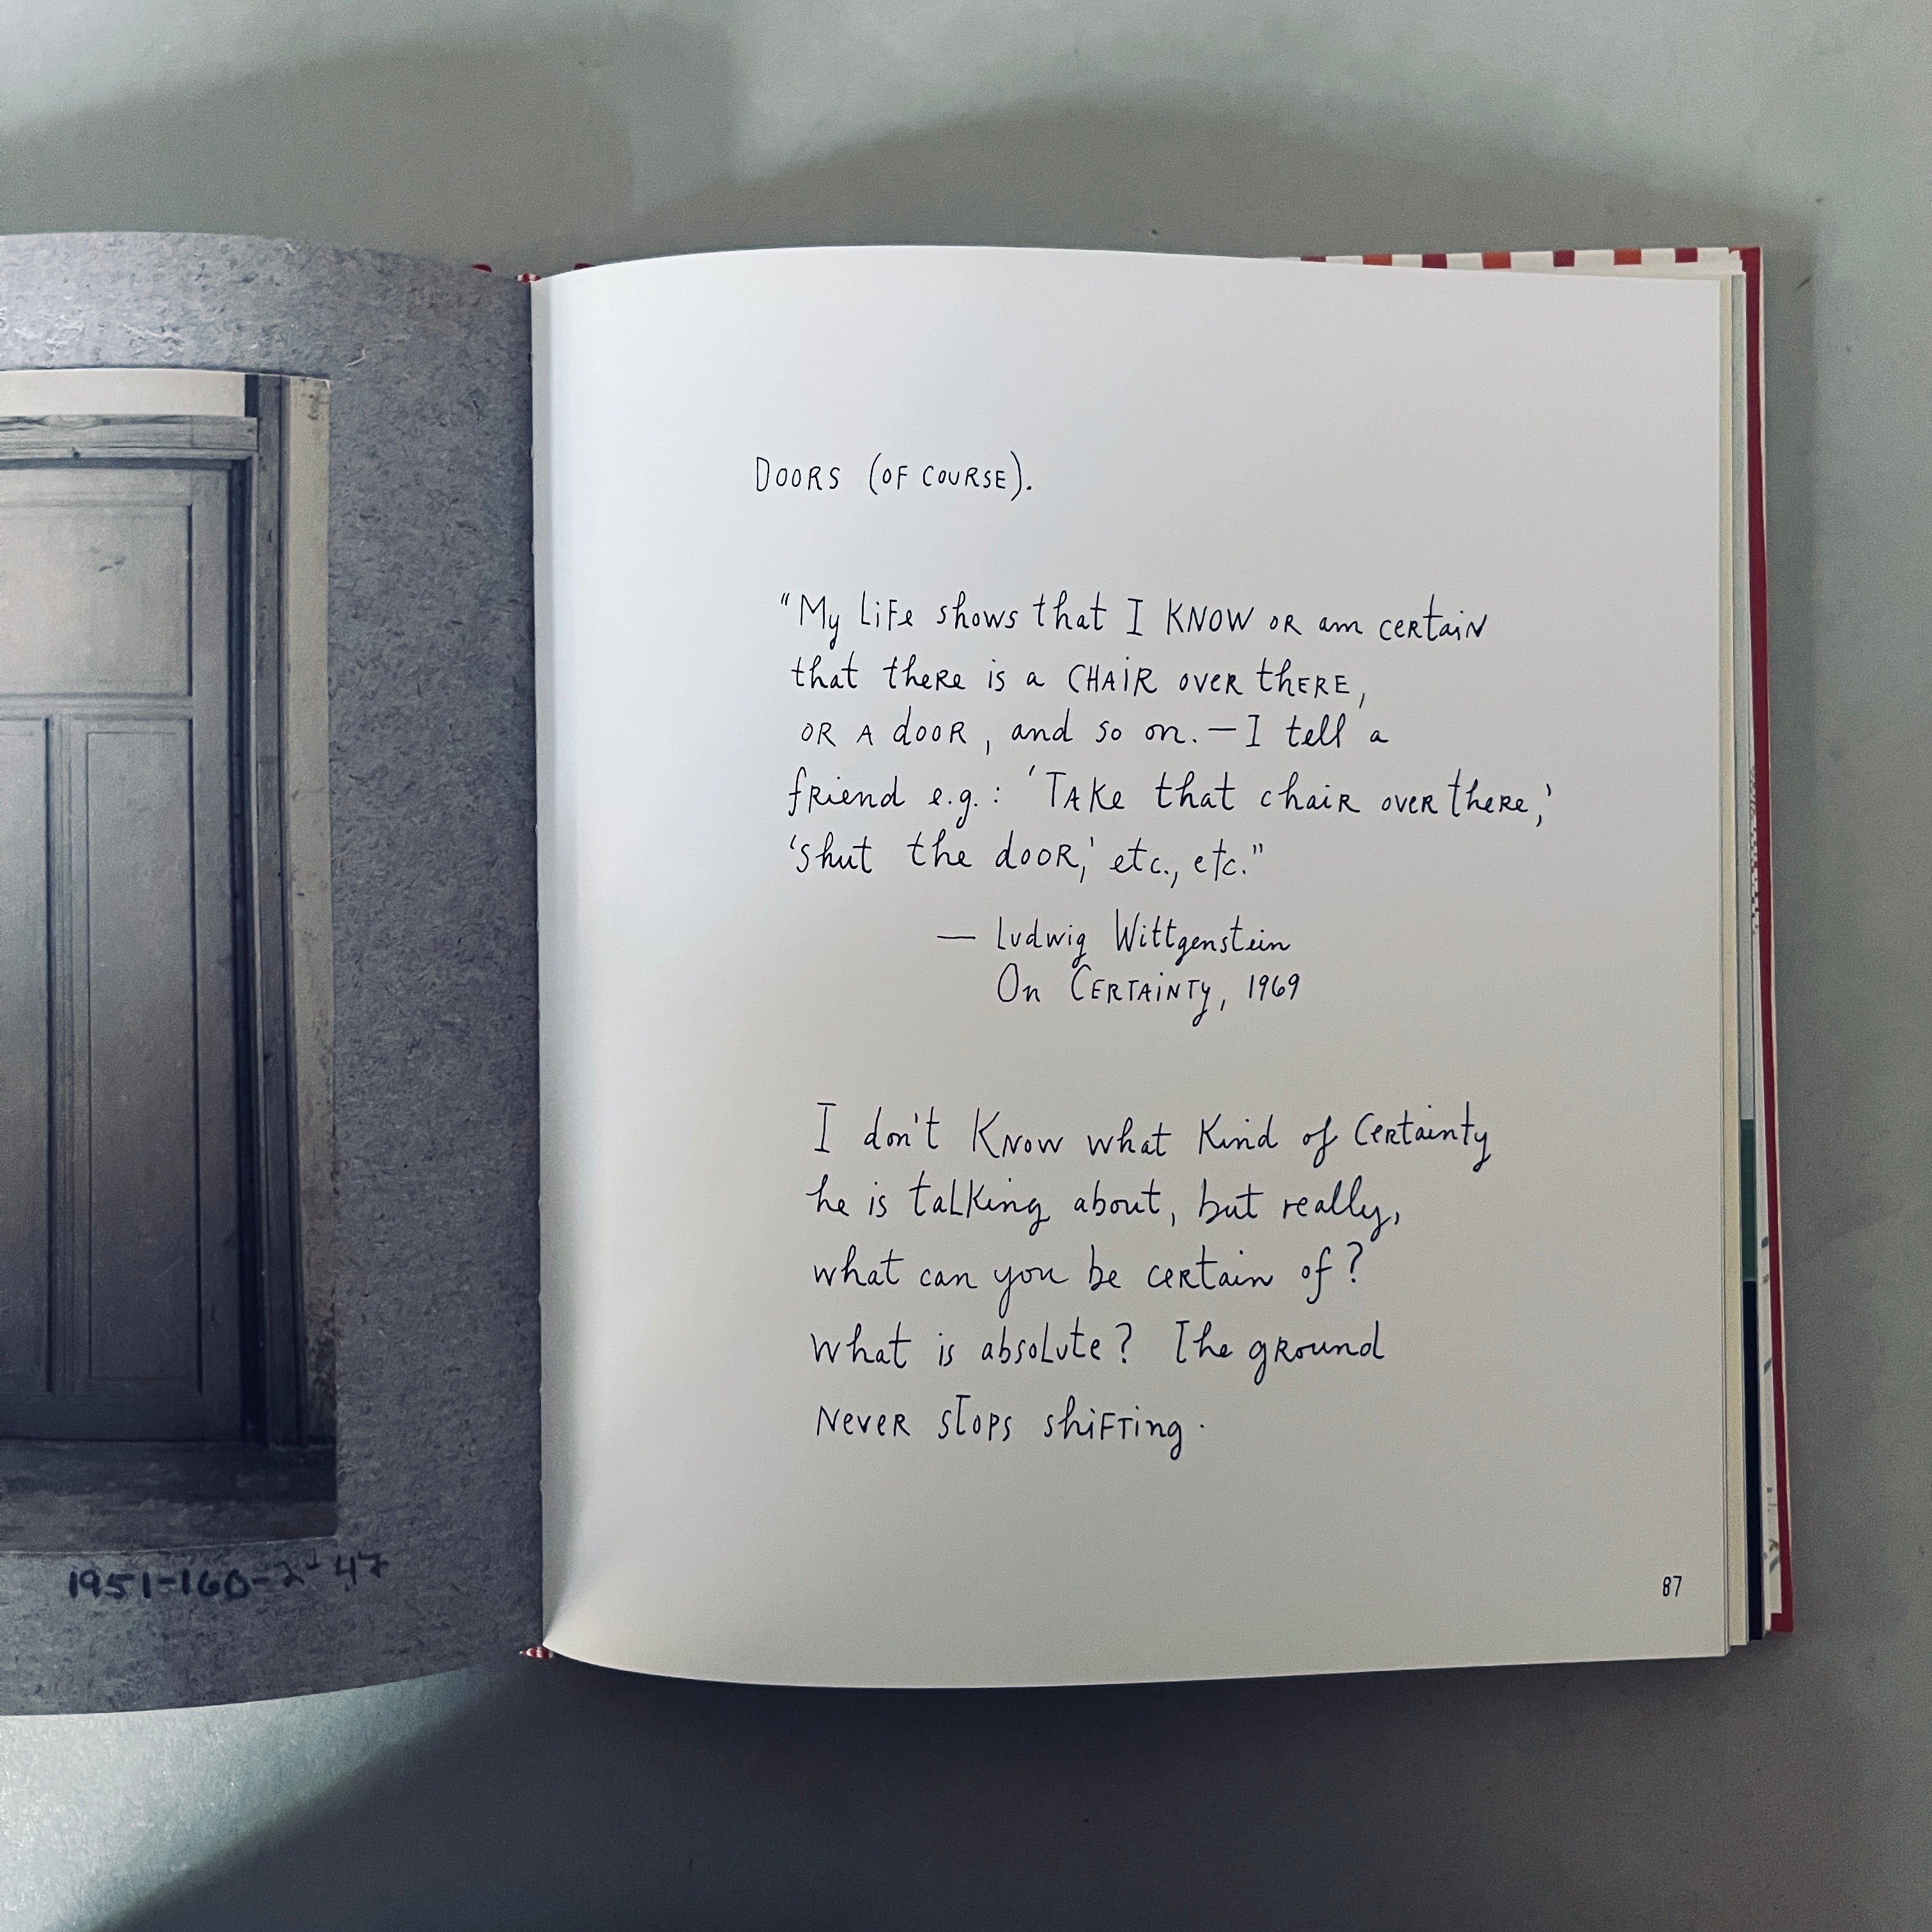 1951-160-2-47
DOORS (OF COURSE).
"My Life shows that I KNOW OR am certaiN
that theRe is a CHAiR oveR thERE,
OR A dooR, and so on. — I tell a
fRiend e.g.: 'TAKe that chaiR oveR there,'
'shut the dooR,' etc., etc."
— Ludwig Wittgenstein
On CERTAiNTy, 1969
I don't KNow what Kind of CeRtainty
he is talKing about, but really,
what can you be ceRtain of?
What is absolute? The gRound
NeveR sTops shiFTing.
87